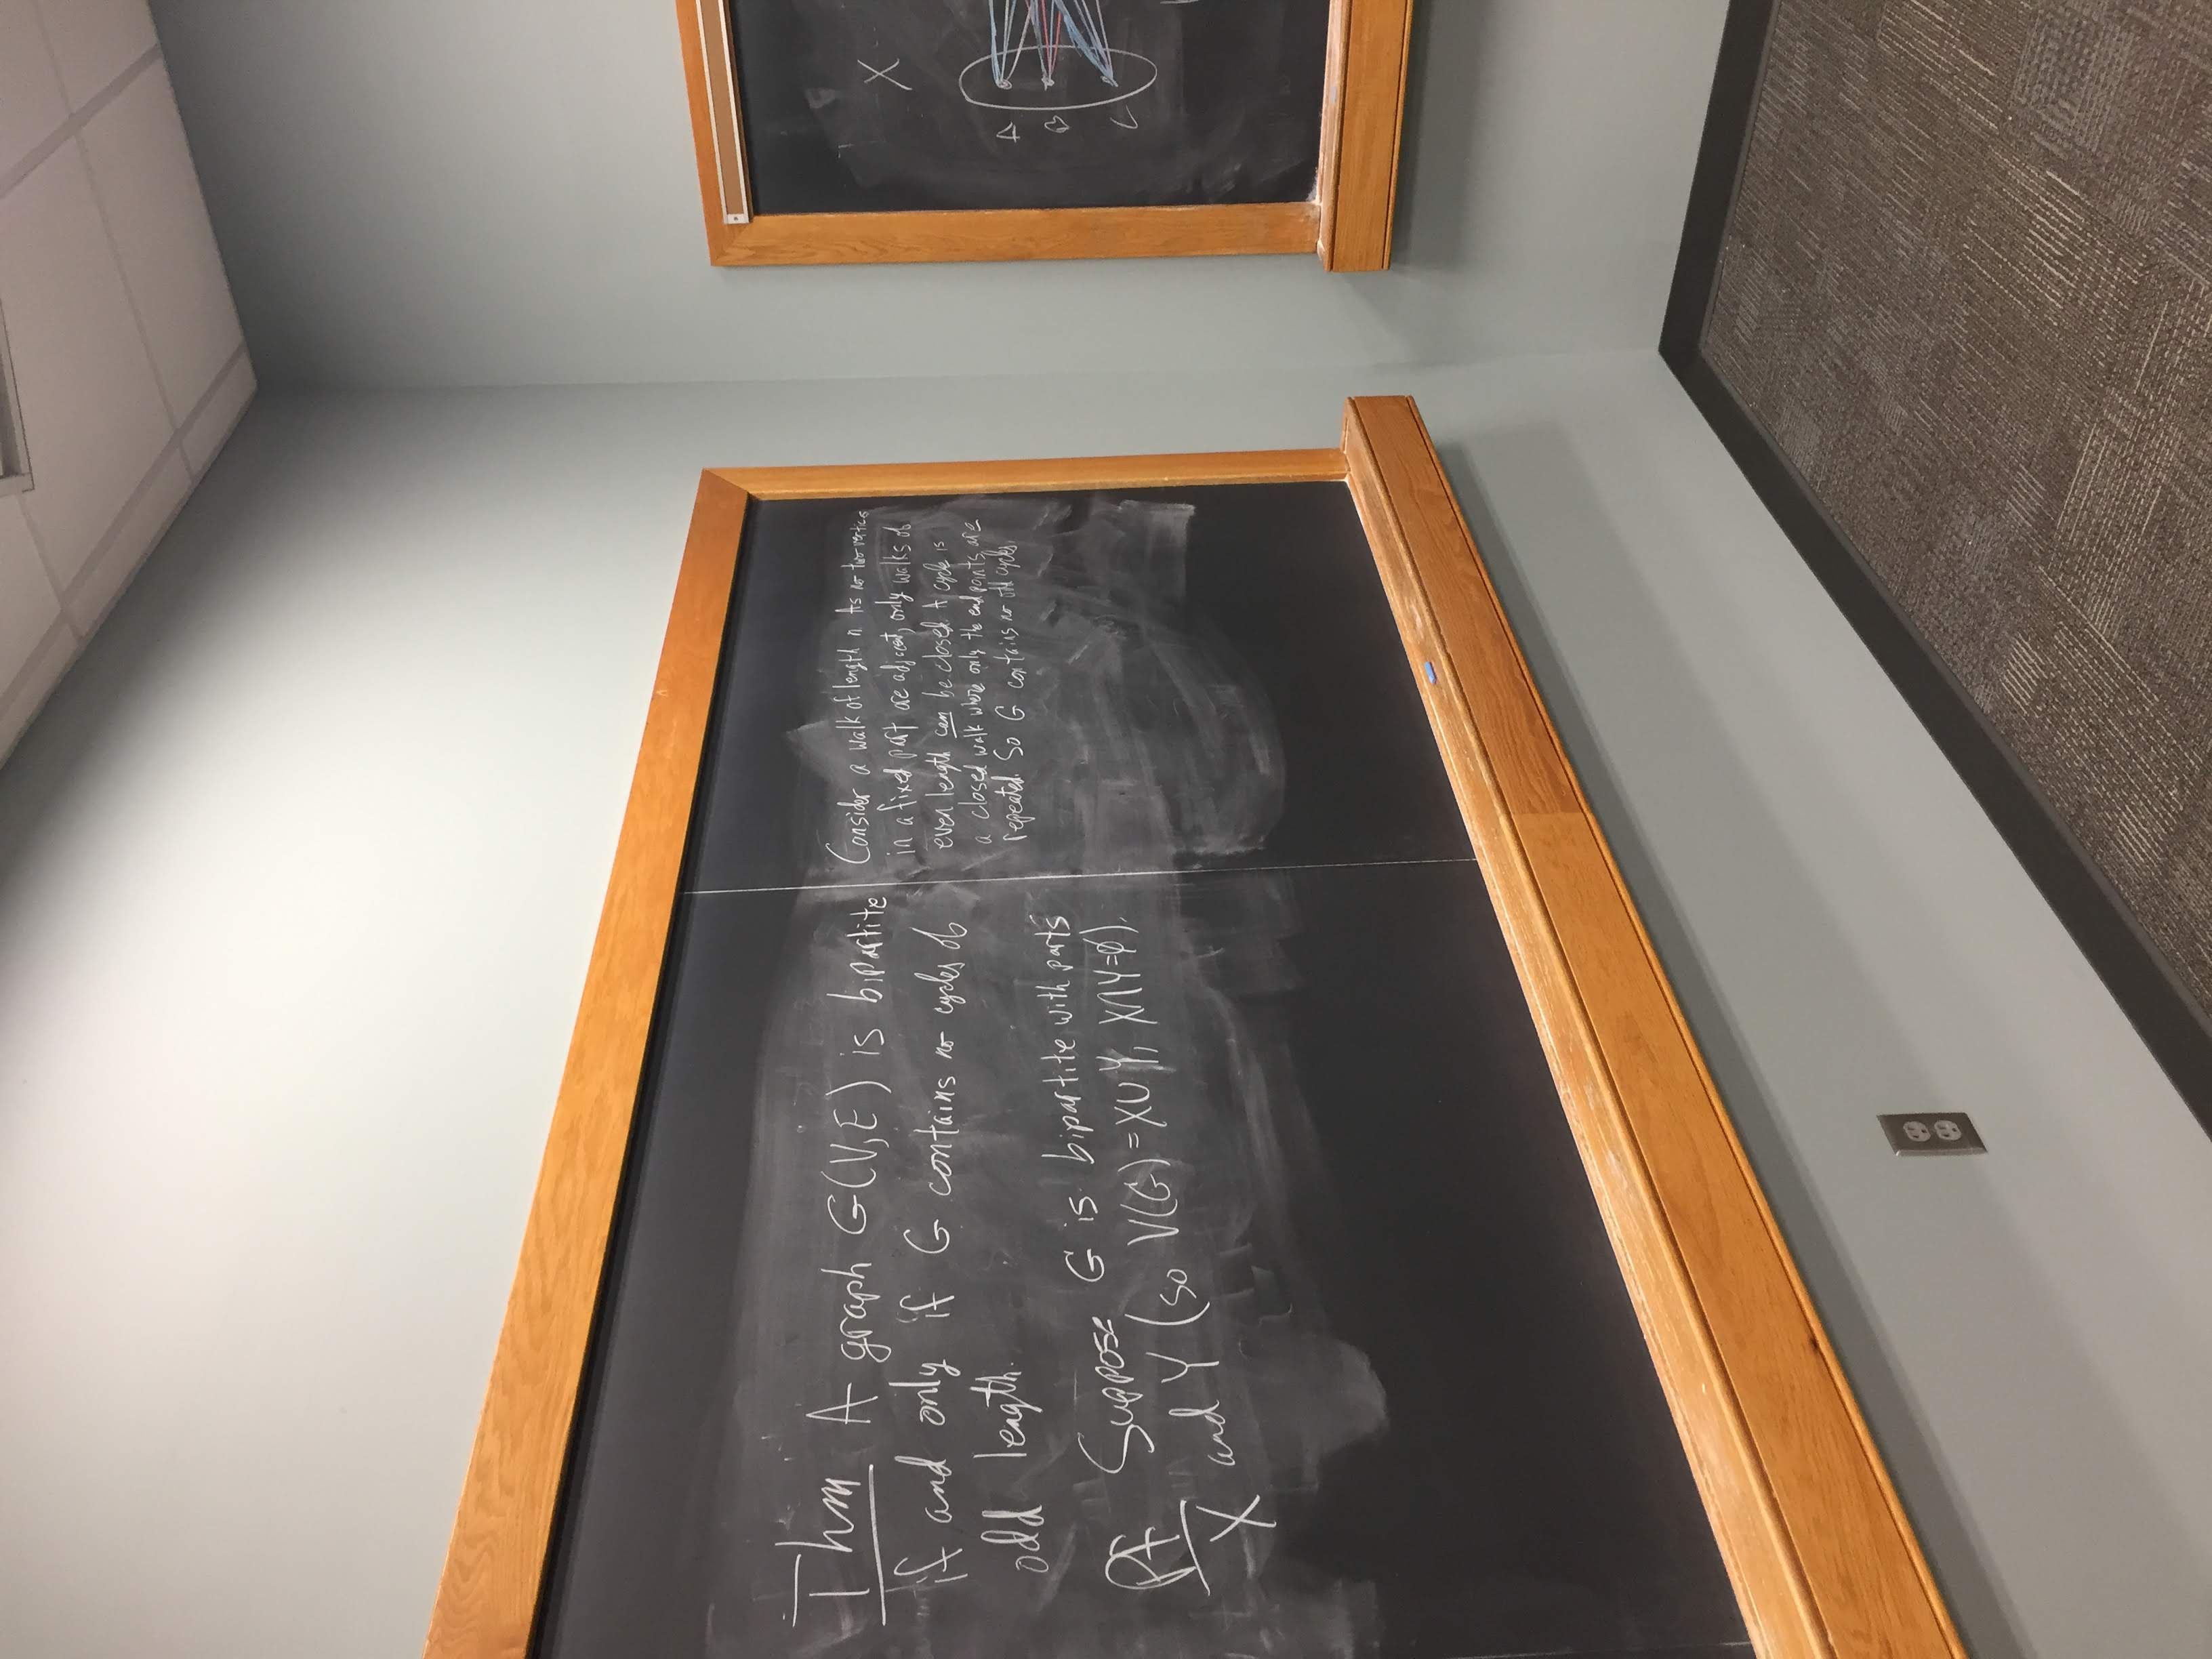 Thm A graph G(V,E) is bipartite
if and only if G contains no cycles of
odd length.
Pf Suppose G is bipartite with parts
X and Y (so V(G)=X∪Y, X∩Y=∅).
Consider a walk of length n. As no two vertices
in a fixed part are adjacent, only walks of
even length can be closed. A cycle is
a closed walk where only the endpoints are
repeated. So G contains no odd cycles.
X
A
B
C